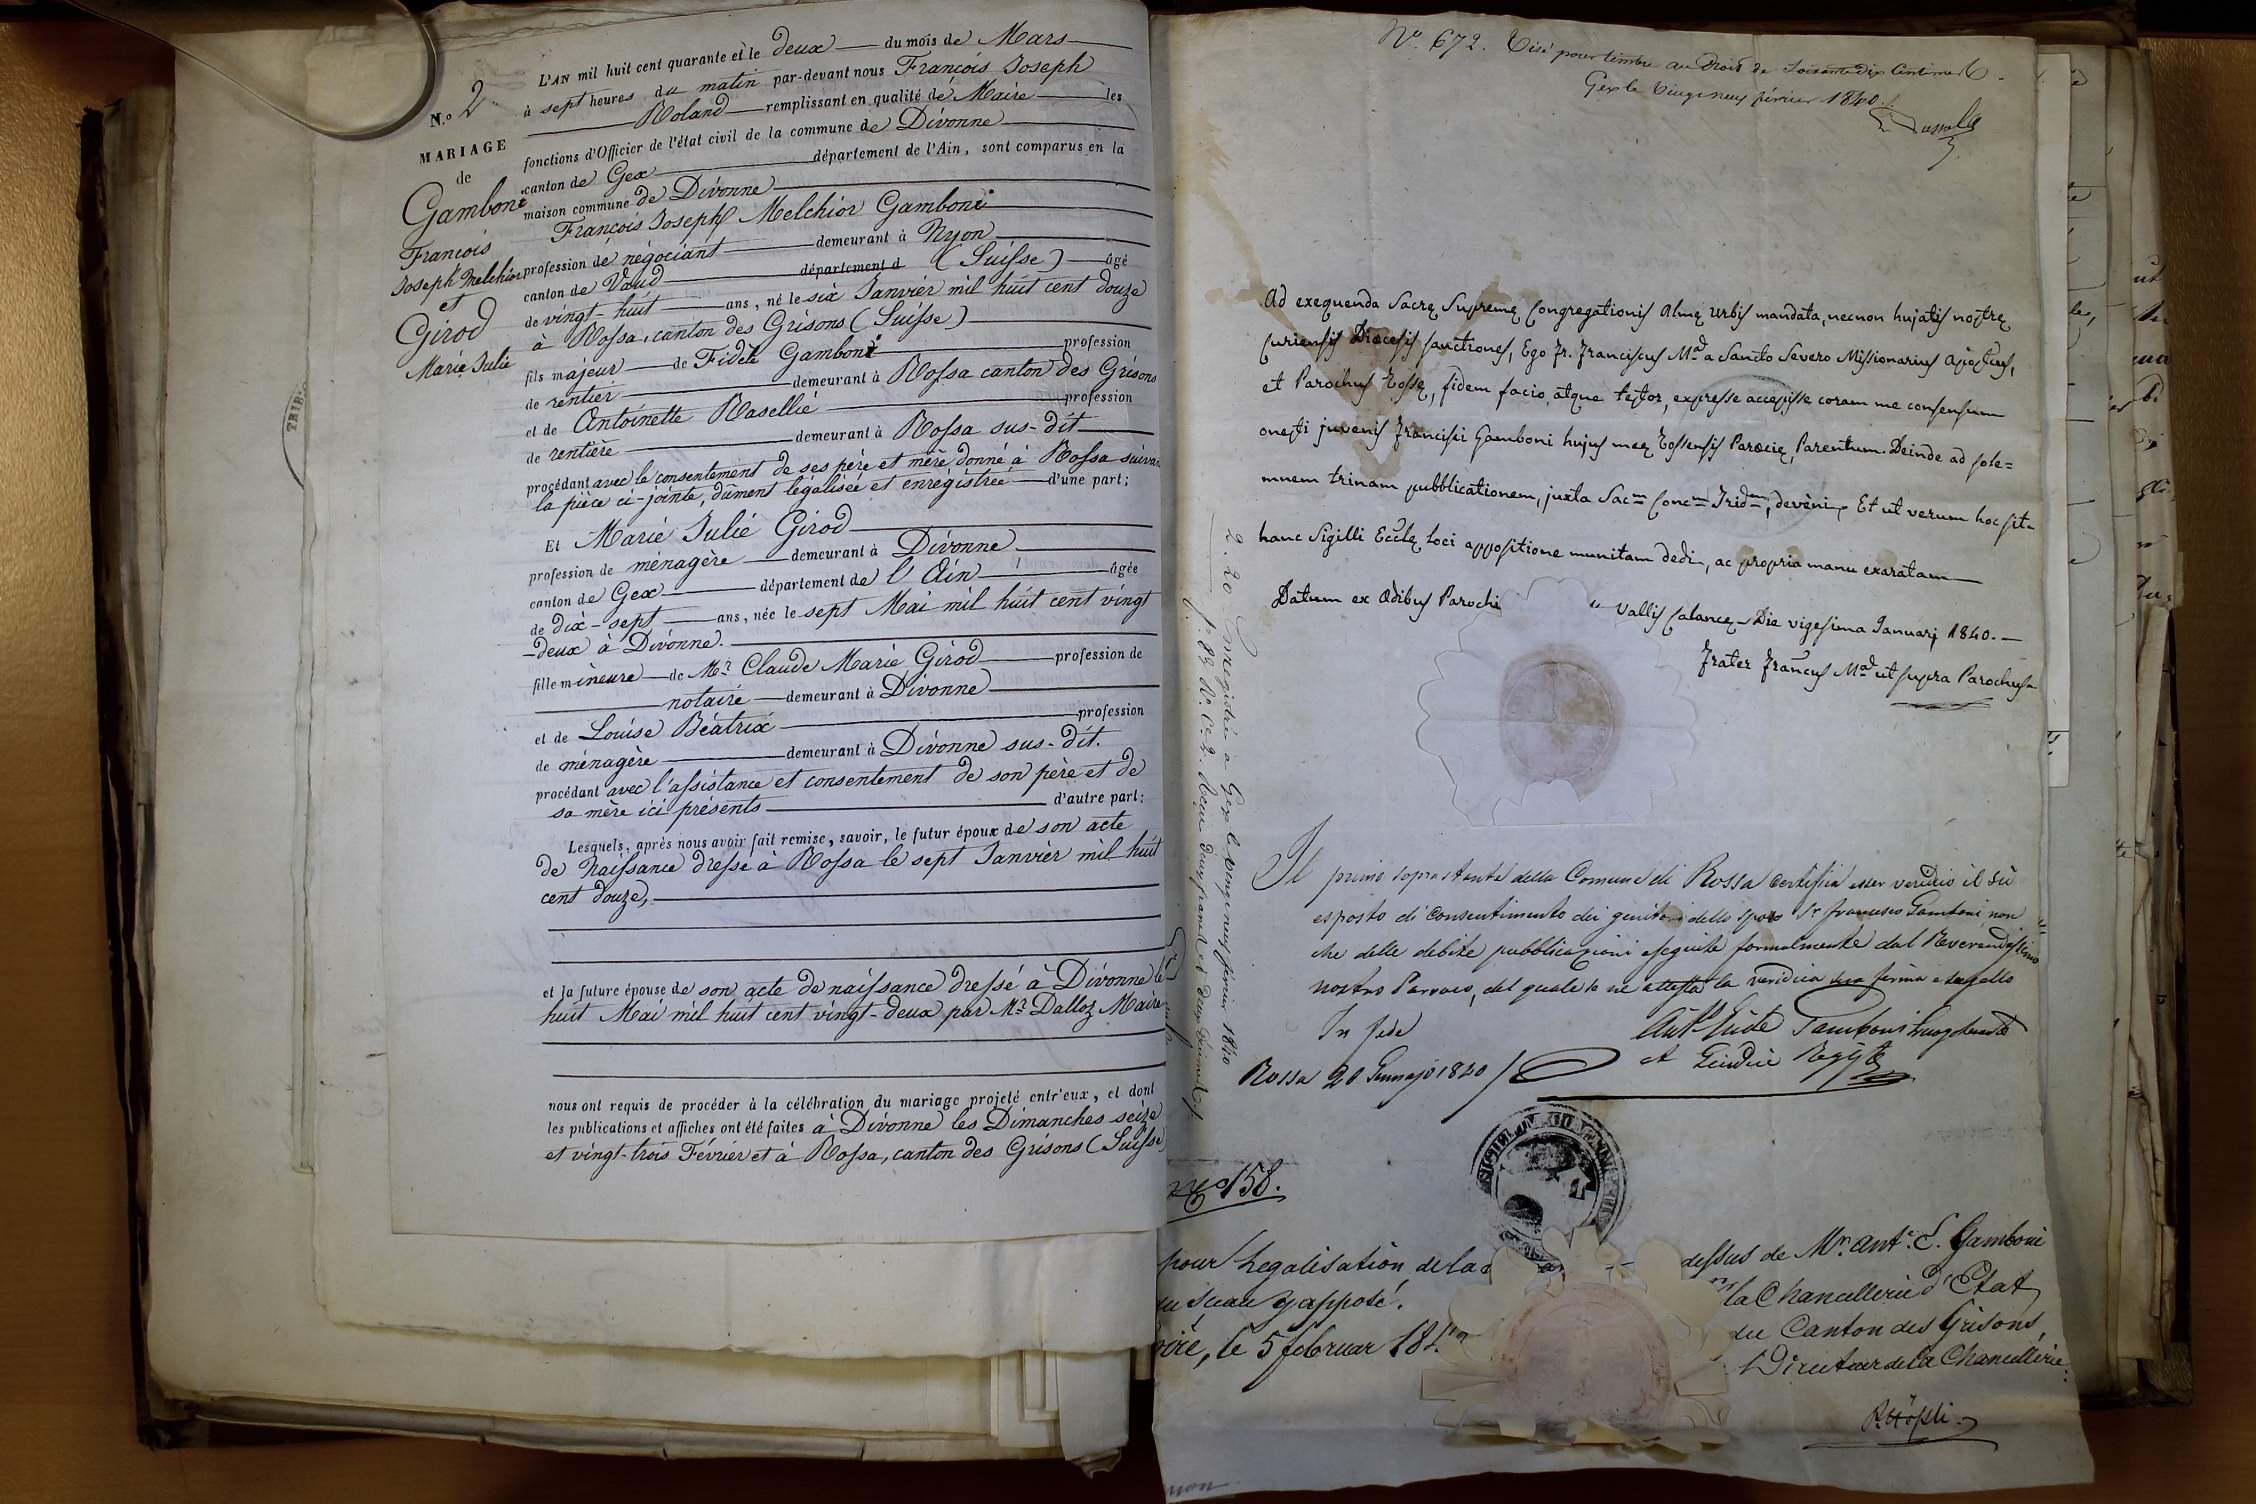 N.o 2
MARIAGE
de
Gamboni
François
Joseph Melchior
et
Girod
Marie Julie
L'AN mil huit cent quarante et le deux du mois de Mars
à sept heures du matin par-devant nous François Joseph
Roland remplissant en qualité de Maire les
fonctions d'Officier de l'état civil de la commune de Divonne
canton de Gex département de l'Ain, sont comparus en la
maison commune de Divonne
François Joseph Melchior Gamboni
profession de négociant demeurant à Nyon
canton de Vaud département d (Suisse) âgé
de vingt-huit ans, né le six Janvier mil huit cent douze
à Rossa, canton des Grisons (Suisse)
fils majeur de Fidèle Gamboni profession
de rentier demeurant à Rossa canton des Grisons
et de Antoinette Rasellié profession
de rentière demeurant à Rossa sus-dit
procédant avec le consentement de ses père et mère donné à Rossa suivant
la pièce ci-jointe, dûment légalisée et enrégistrée d'une part;
Et Marie Julie Girod
profession de ménagère demeurant à Divonne
canton de Gex département de l'Ain âgée
de dix-sept ans, née le sept Mai mil huit cent vingt
-deux à Divonne.
fille mineure de Mr. Claude Marie Girod profession de
notaire demeurant à Divonne
et de Louise Béatrix profession
de ménagère demeurant à Divonne sus-dit.
procédant avec l'assistance et consentement de son père et de
sa mère ici présents d'autre part:
Lesquels, après nous avoir fait remise, savoir, le futur époux de son acte
de Naissance dressé à Rossa le sept Janvier mil huit
cent douze,
et la future épouse de son acte de naissance dressé à Divonne le
huit Mai mil huit cent vingt-deux par Mr. Dalloz Maire
nous ont requis de procéder à la célébration du mariage projeté entr'eux, et dont
les publications et affiches ont été faites à Divonne les Dimanches seize
et vingt-trois Février et à Rossa, canton des Grisons (Suisse)
No. 672. Visé pour timbre au droit de Soixante dix Centimes
Gex le Vingt neuf février 1840.
Ad exequenda Sacrę Supremę Congregationis Almę Urbis mandata, necnon hujatis nostrę
Curiensis Diœcesis sanctiones, Ego Fr. Franciscus Mad a Sancto Severo Missionarius Apostcus,
et Parochus Rossę, fidem facio, atque testor, expresse accepisse coram me consensum
onesti juvenis Francisci Gamboni hujus meę Rossensis Parœcię, Parentum. Deinde ad sole=
mnem trinam pubblicationem, juxta Sacm Concm Tridm, devèni. Et ut verum hoc sit
hanc Sigilli Ecclę loci appositione munitam dedi, ac propria manu exaratam
Datum ex Ædibus Parochi Vallis Calancę Die vigesima Januarj 1840.
Frater Francus Mad ut supra Parochus
Enregistré à Gex le vingt neuf février 1840
Il primo soprastante della Comune di Rossa certifica esser veridico il sù
esposto di consentimento dei genitori dello sposo Sr. Francesco Gamboni non
che delle debite pubblicazioni eseguite formalmente dal Reverendissimo
nostro Parroco, del quale se ne attesta la veridica sua firma e sugello
In fede
Rossa 20 Gennajo 1840
No 158.
pour Legalisation de la dessus de Mr. Ant. F. Gamboni
du Sceau y apposé. la Chancellerie d'Etat
le 5 februar 184 du Canton des Grisons,
Directeur de la Chancellerie: